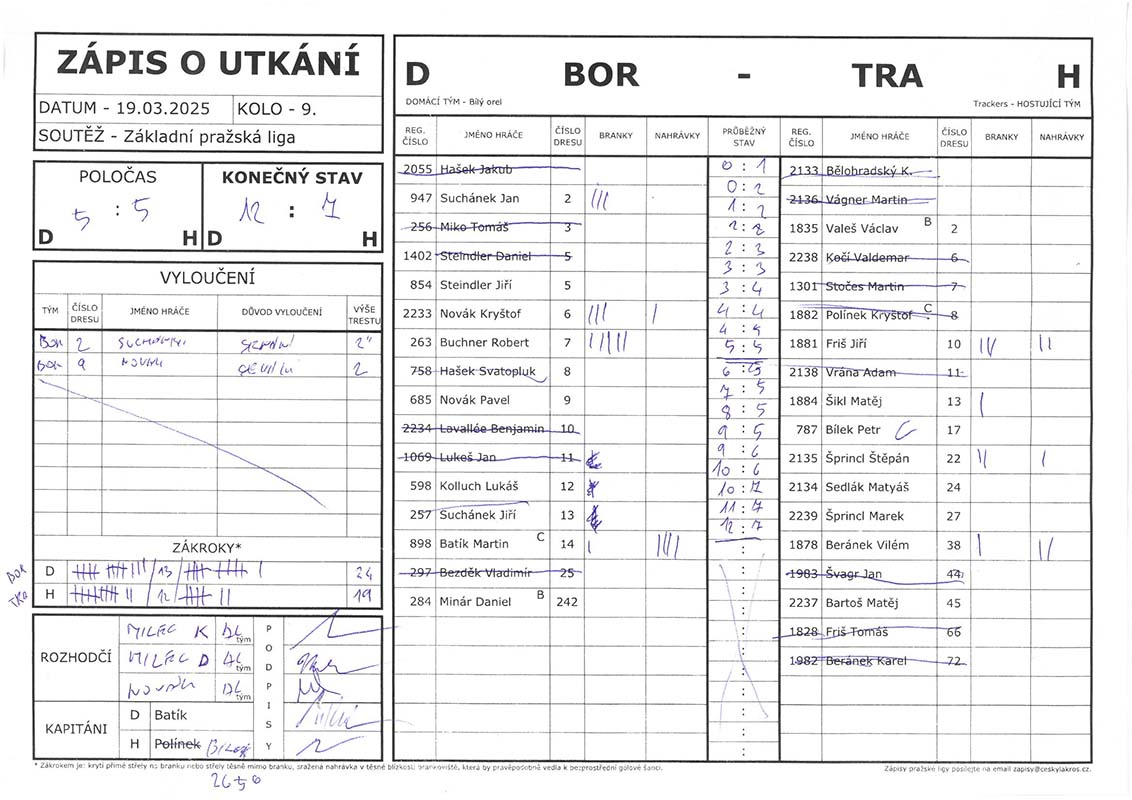 ZÁPIS O UTKÁNÍ
DATUM - 19.03.2025 KOLO - 9.
SOUTĚŽ - Základní pražská liga
POLOČAS KONEČNÝ STAV
5 : 5 12 : 7
D H D H
VYLOUČENÍ
TÝM ČÍSLO DRESU JMÉNO HRÁČE DŮVOD VYLOUČENÍ VÝŠE TRESTU
BOR 2 2"
BOR 9 NOVÁK 2
ZÁKROKY*
BOR D 13 24
TRA H 12 19
ROZHODČÍ
MILEC K tým
MILEC D tým
NOVÁK tým
PODPISY
KAPITÁNI
D Batík
H Polínek BÍLEK
D BOR - TRA H
DOMÁCÍ TÝM - Bílý orel Trackers - HOSTUJÍCÍ TÝM
REG. ČÍSLO JMÉNO HRÁČE ČÍSLO DRESU BRANKY NAHRÁVKY PRŮBĚŽNÝ STAV REG. ČÍSLO JMÉNO HRÁČE ČÍSLO DRESU BRANKY NAHRÁVKY
2055 Hašek Jakub
947 Suchánek Jan 2 |||
256 Miko Tomáš 3
1402 Steindler Daniel 5
854 Steindler Jiří 5
2233 Novák Kryštof 6 ||| |
263 Buchner Robert 7 |||||
758 Hašek Svatopluk 8
685 Novák Pavel 9
2234 Lavallée Benjamin 10
1069 Lukeš Jan 11
598 Kolluch Lukáš 12
257 Suchánek Jiří 13
898 Batík Martin C 14 | ||||
297 Bezděk Vladimír 25
284 Minár Daniel B 242
0 : 1
0 : 2
1 : 2
2 : 2
2 : 3
3 : 3
3 : 4
4 : 4
4 : 5
5 : 5
6 : 5
7 : 5
8 : 5
9 : 5
9 : 6
10 : 6
10 : 7
11 : 7
12 : 7
2133 Bělohradský K.
2136 Vágner Martin
1835 Valeš Václav B 2
2238 Kočí Valdemar 6
1301 Stočes Martin 7
1882 Polínek Kryštof C 8
1881 Friš Jiří 10 ||| ||
2138 Vrána Adam 11
1884 Šikl Matěj 13 |
787 Bílek Petr C 17
2135 Šprincl Štěpán 22 || |
2134 Sedlák Matyáš 24
2239 Šprincl Marek 27
1878 Beránek Vilém 38 | ||
1983 Švagr Jan 44
2237 Bartoš Matěj 45
1828 Friš Tomáš 66
1982 Beránek Karel 72
* Zákrokem je: krytí přímé střely na branku nebo střely těsně mimo branku, sražená nahrávka v těsné blízkosti brankoviště, která by pravěpodobně vedla k bezprostřední gólové šanci.
Zápisy pražské ligy posílejte na email zapisy@ceskylakros.cz.